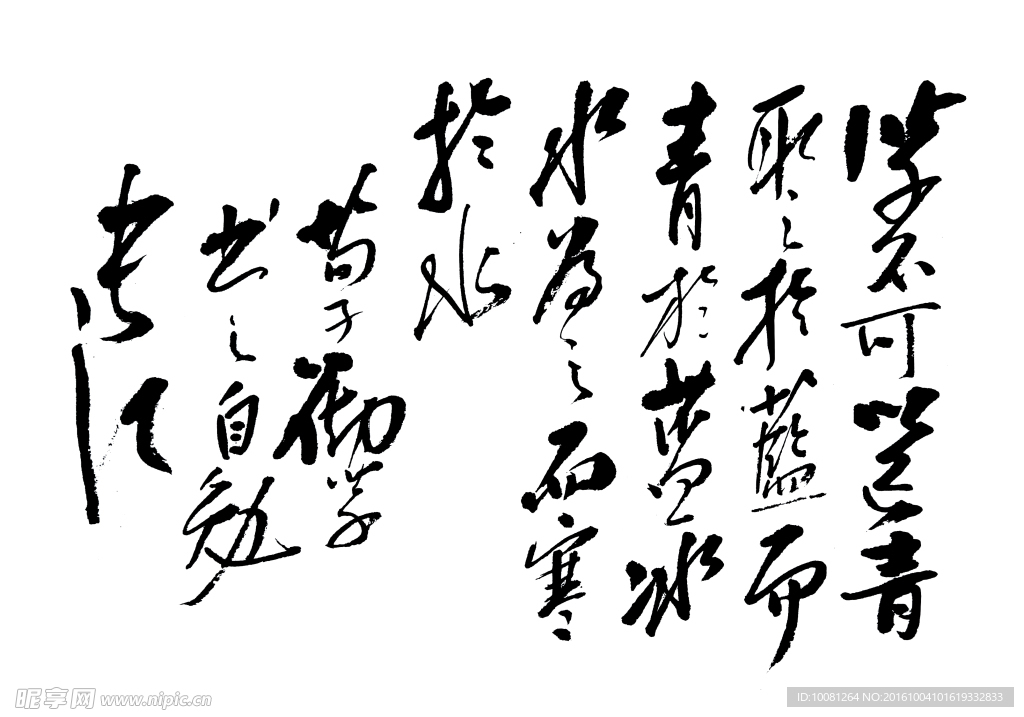 學不可以已青
取之於藍而
青於藍冰
水為之而寒
於水
荀子勸学
书之自勉
昵享网 www.nipic.cn
ID:10081264 NO:20161004101619332833